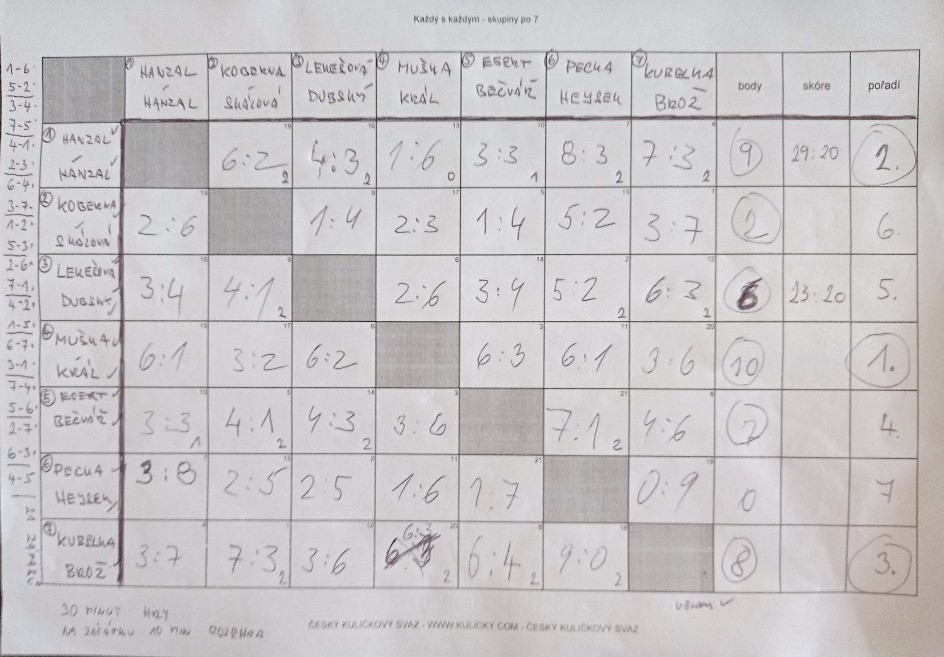 Každý s každým - skupiny po 7
① HANZAL HANZAL ② KOBERNA SKÁLOVÁ ③ LEKEŠOVÁ DUBSKÝ ④ MUŠKA KRÁL ⑤ EGERT BEČVÁŘ ⑥ PECHA HEYSEK ⑦ KUBELKA BROŽ body skóre pořadí
① HANZAL HANZAL 18 6:2 2 16 4:3 2 13 1:6 0 10 3:3 1 7 8:3 2 4 7:3 2 9 29:20 2.
② KOBERNA SKÁLOVÁ 2:6 1:4 2:3 1:4 5:2 3:7 2 6.
③ LEKEŠOVÁ DUBSKÝ 3:4 4:1 2 2:6 3:4 5:2 2 6:3 2 6 23:20 5.
④ MUŠKA KRÁL 6:1 3:2 6:2 6:3 6:1 3:6 10 1.
⑤ EGERT BEČVÁŘ 3:3 1 4:1 2 4:3 2 3:6 7:1 2 4:6 7 4.
⑥ PECHA HEYSEK 3:8 2:5 2:5 1:6 1:7 0:9 0 7
⑦ KUBELKA BROŽ 3:7 7:3 2 3:6 6:3 2 6:4 2 9:0 2 8 3.
1-6
5-2
3-4
7-5
4-1
2-3
6-4
3-7
1-2
5-3
2-6
7-1
4-2
1-5
6-7
3-1
7-4
5-6
2-7
6-3
4-5
30 MINUT HRY
NA ZAČÁTKU 10 MIN ROZEHRA
ČESKÝ KULIČKOVÝ SVAZ - WWW.KULICKY.COM - ČESKÝ KULIČKOVÝ SVAZ